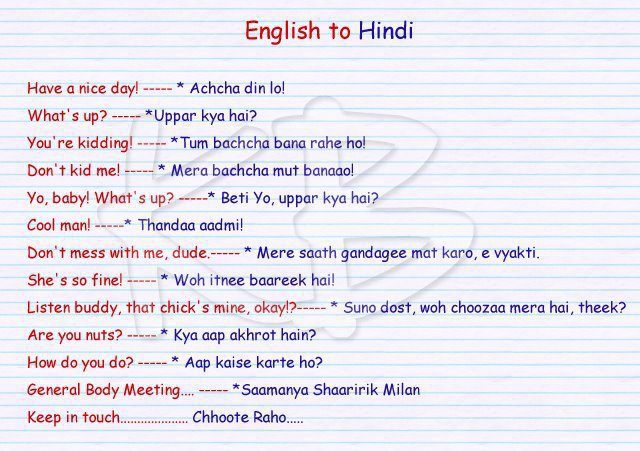 English to Hindi
Have a nice day! ----- * Achcha din lo!
What's up? ----- *Uppar kya hai?
You're kidding! ----- *Tum bachcha bana rahe ho!
Don't kid me! ----- * Mera bachcha mut banaao!
Yo, baby! What's up? -----* Beti Yo, uppar kya hai?
Cool man! -----* Thandaa aadmi!
Don't mess with me, dude.----- * Mere saath gandagee mat karo, e vyakti.
She's so fine! ----- * Woh itnee baareek hai!
Listen buddy, that chick's mine, okay!?----- * Suno dost, woh choozaa mera hai, theek?
Are you nuts? ----- * Kya aap akhrot hain?
How do you do? ----- * Aap kaise karte ho?
General Body Meeting.... ----- *Saamanya Shaaririk Milan
Keep in touch.................... Chhoote Raho.....
KB